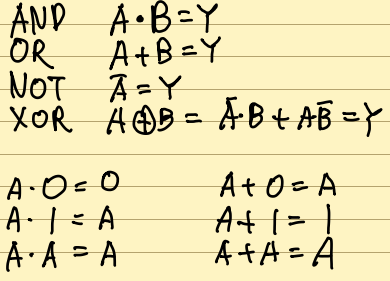 AND A·B=Y
OR A+B=Y
NOT A̅=Y
XOR A⊕B= A̅·B+AB̅=Y
A·0=0 A+0=A
A·1=A A+1=1
A·A=A A+A=A